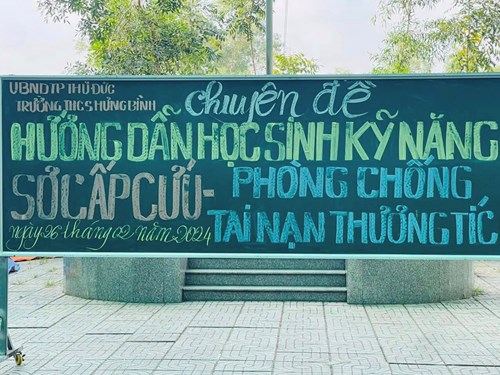 UBND TP THỦ ĐỨC
TRƯỜNG THCS HƯNG BÌNH
chuyên đề
HƯỚNG DẪN HỌC SINH KỸ NĂNG
SƠ CẤP CỨU - PHÒNG CHỐNG
TAI NẠN THƯƠNG TÍC
ngày 26 tháng 02 năm 2024